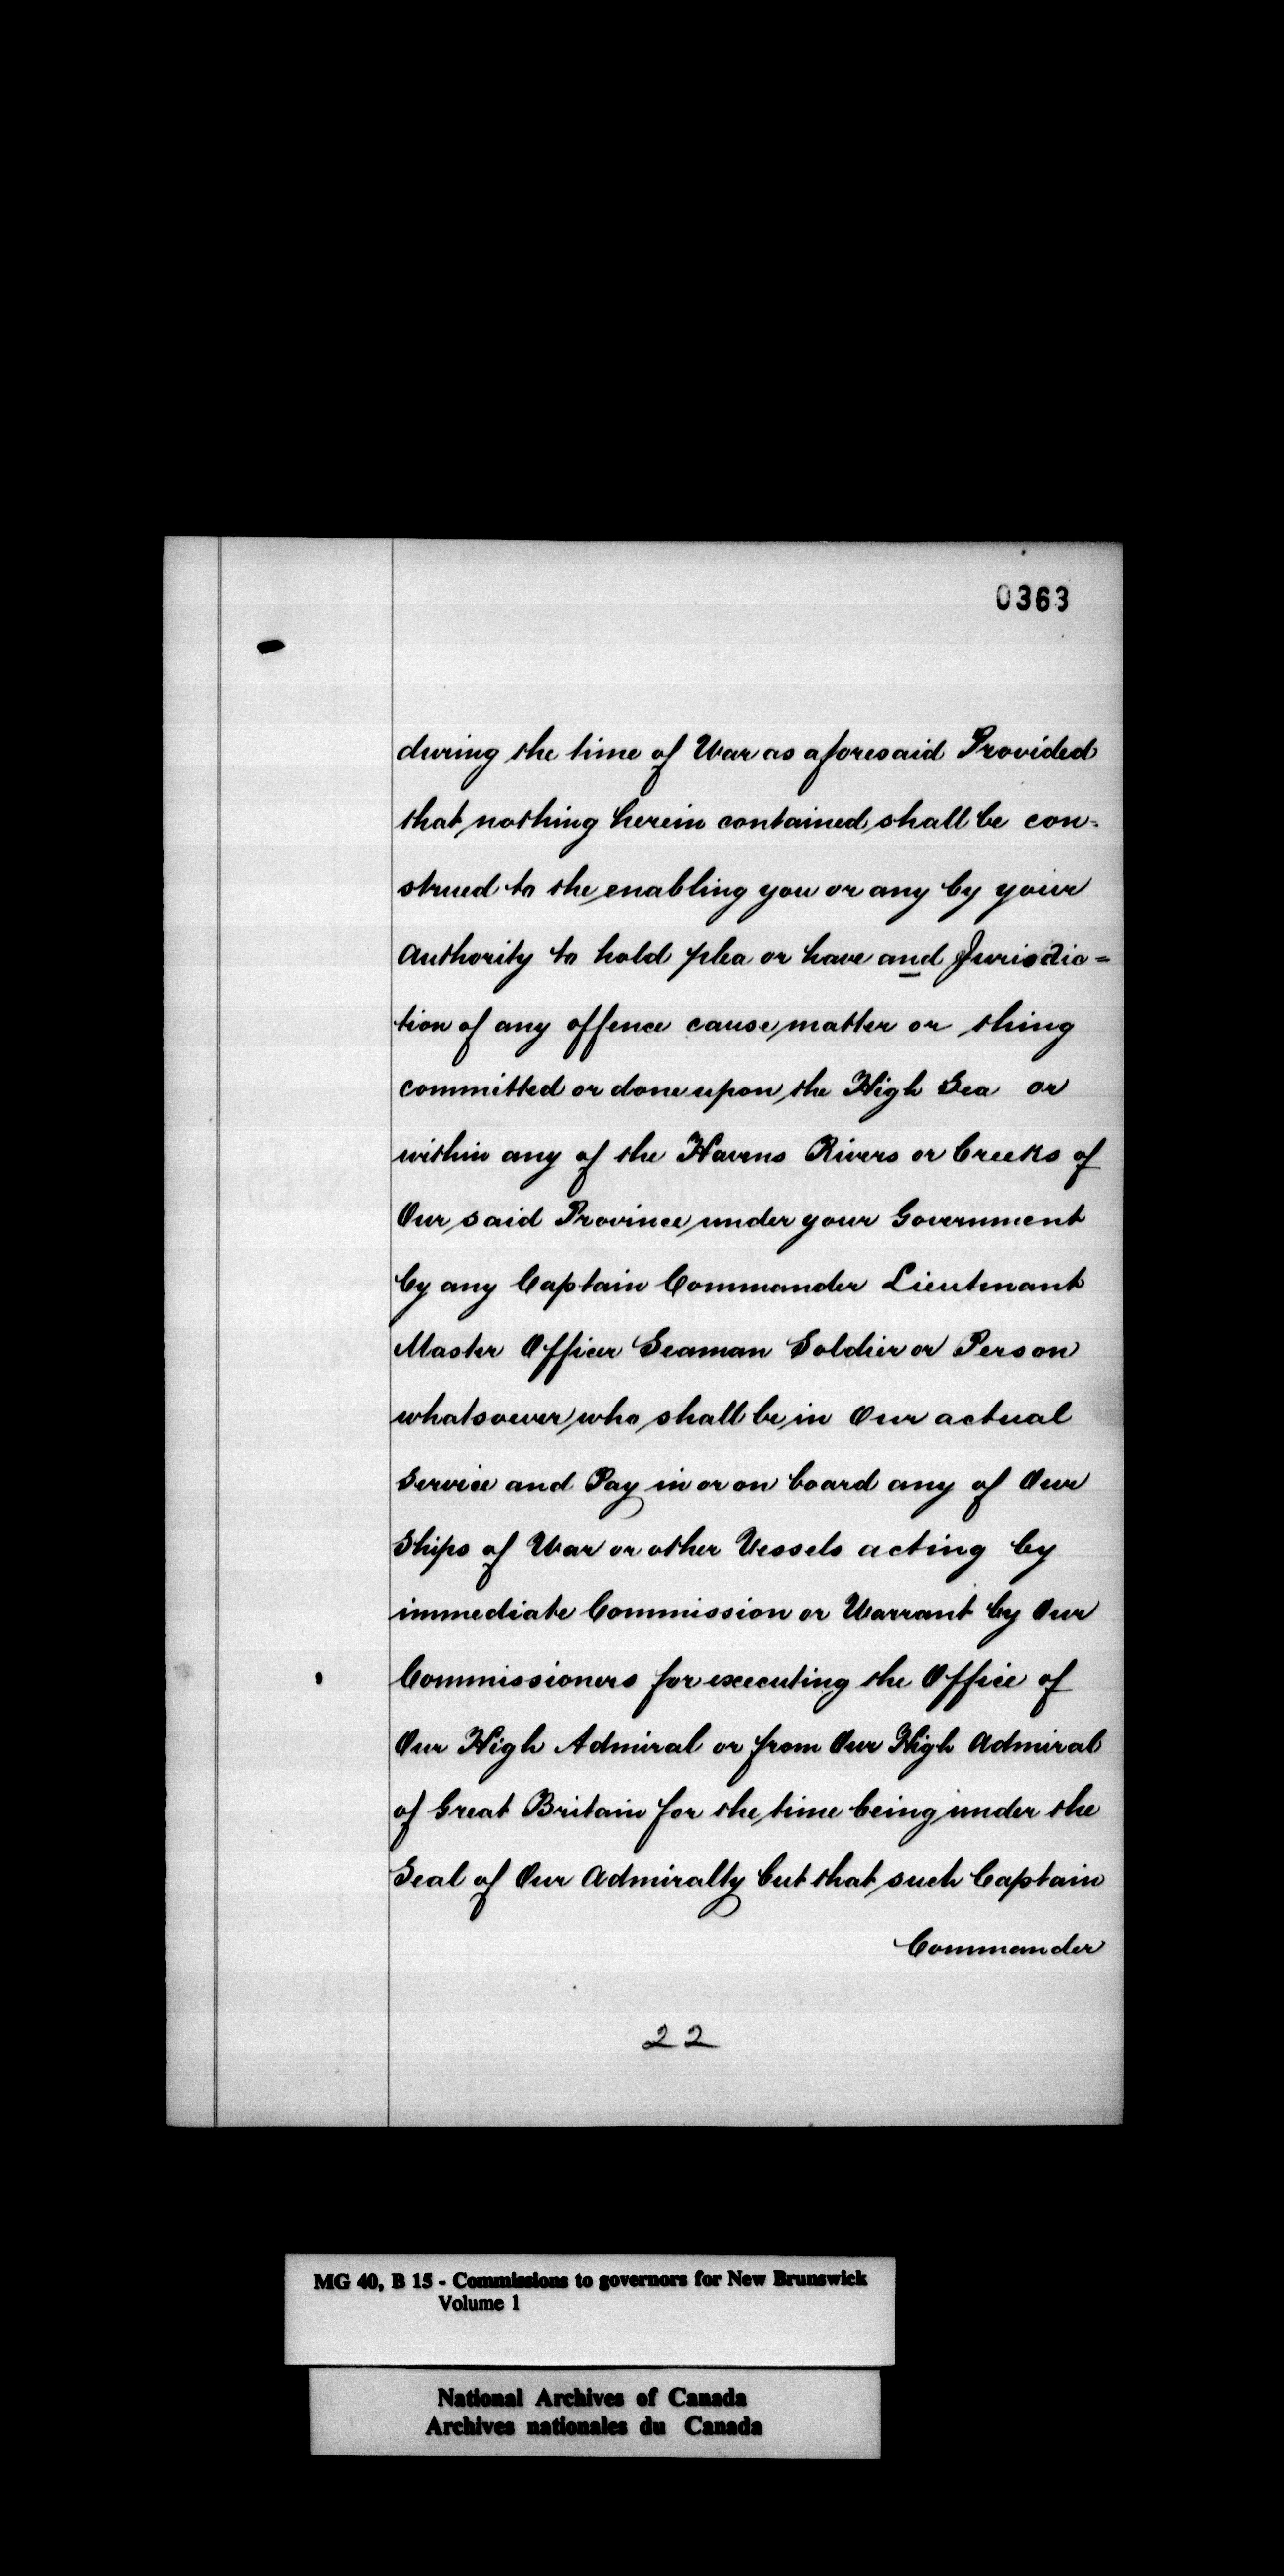 0363
during the time of War as aforesaid Provided
that nothing herein contained shall be con=
strued to the enabling you or any by your
Authority to hold plea or have and Jurisdic=
tion of any offence cause matter or thing
committed or done upon the High Sea or
within any of the Havens Rivers or Creeks of
Our said Province under your Government
by any Captain Commander Lieutenant
Master Officer Seaman Soldier or Person
whatsoever who shall be in Our actual
Service and Pay in or on board any of Our
Ships of War or other Vessels acting by
immediate Commission or Warrant by Our
Commissioners for executing the Office of
Our High Admiral or from Our High Admiral
of Great Britain for the time being under the
Seal of Our Admiralty but that such Captain
Commander
22
MG 40, B 15 - Commissions to governors for New Brunswick
Volume 1
National Archives of Canada
Archives nationales du Canada